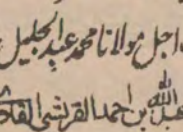 واجل مولانا محمد عبد الجلیل
عبد الله بن احمد القرشی القا